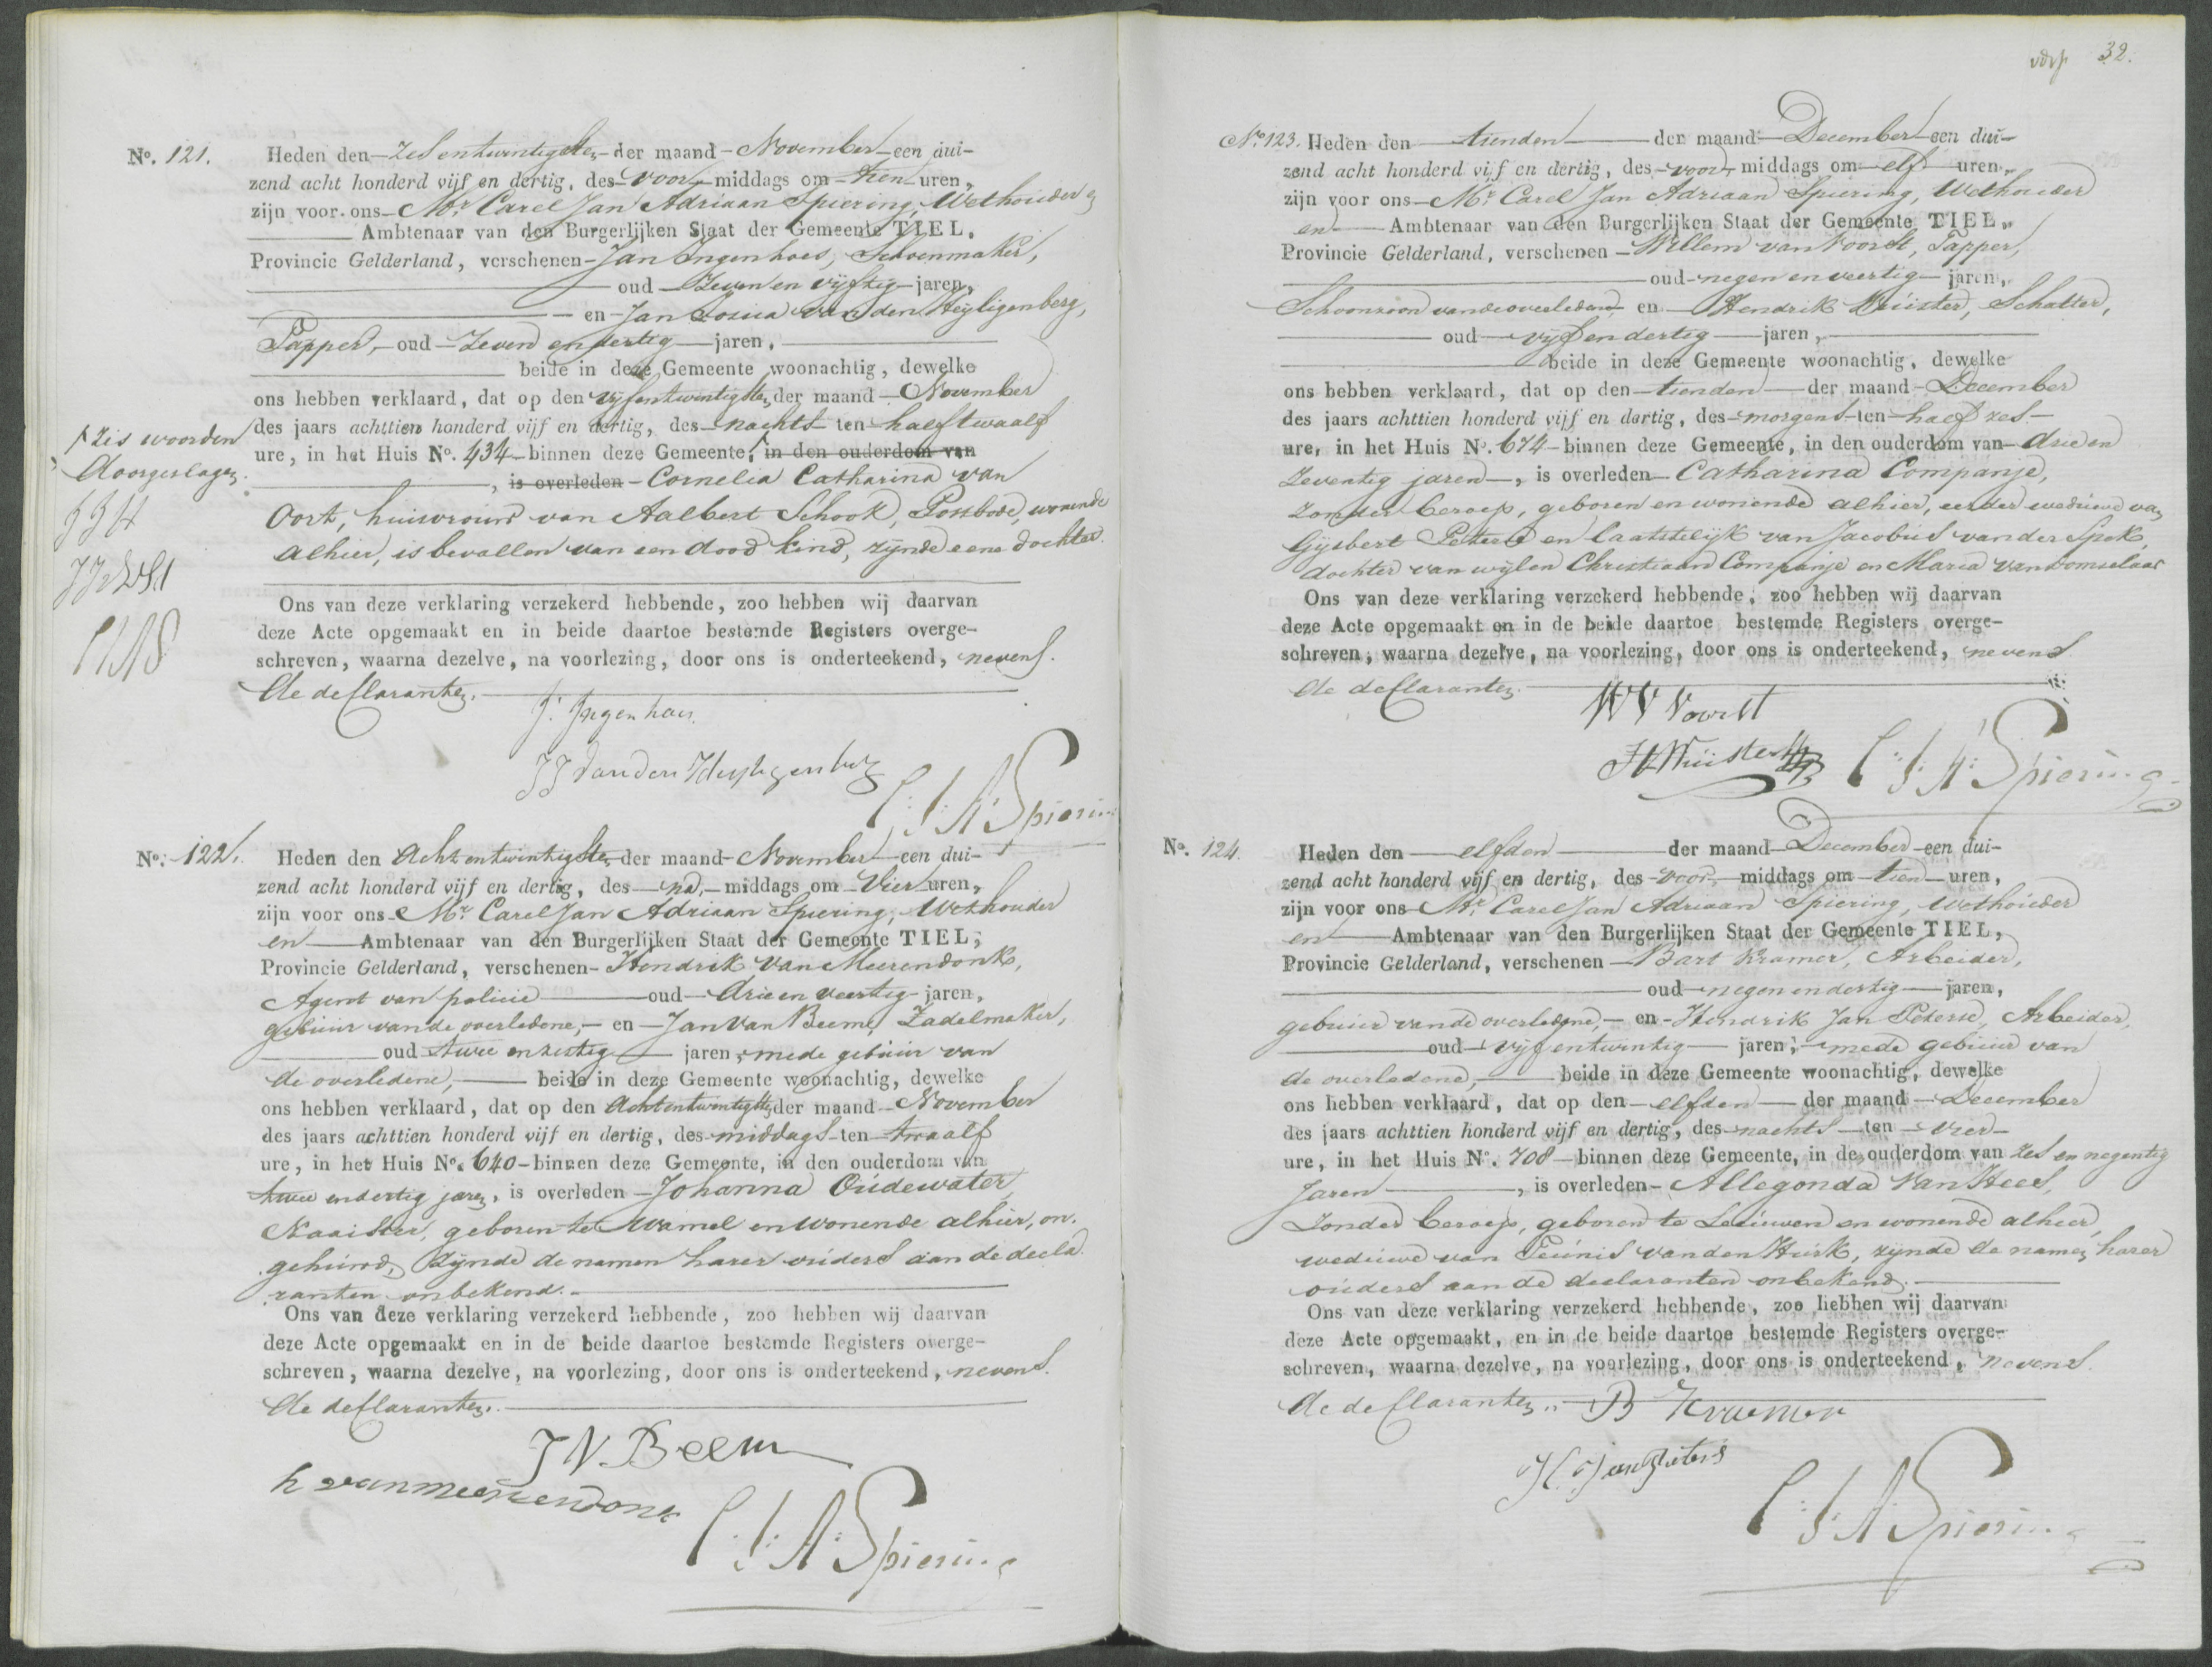 No. 121. Heden den zesentwintigsten der maand November een dui-
zend acht honderd vijf en dertig, des voor middags om tien uren,
zijn voor ons Mr. Carel Jan Adriaan Spiering, Wethouder en
Ambtenaar van den Burgerlijken Staat der Gemeente TIEL,
Provincie Gelderland, verschenen Jan Ingenhoes, Schoenmaker,
oud zeven en vijftig jaren,
en Jan Josua van den Heyligenberg,
Tapper, oud zeven en dertig jaren,
beide in deze Gemeente woonachtig, dewelke
ons hebben verklaard, dat op den vijfentwintigsten der maand November
des jaars achttien honderd vijf en dertig, des nachts ten half twaalf
ure, in het Huis No. 434 binnen deze Gemeente, in den ouderdom van
, is overleden Cornelia Catharina van
Oort, huisvrouw van Aalbert Schook, Postbode, wonende
alhier, is bevallen van een dood kind, zijnde eene dochter.
Ons van deze verklaring verzekerd hebbende, zoo hebben wij daarvan
deze Acte opgemaakt en in beide daartoe bestemde Registers overge-
schreven, waarna dezelve, na voorlezing, door ons is onderteekend, nevens
de declaranten.
zes woorden
doorgeslagen
J. Ingenhoes
JJ van den Heyligenberg
C. J. A. Spiering
No. 122. Heden den achtentwintigsten der maand November een dui-
zend acht honderd vijf en dertig, des na middags om vier uren,
zijn voor ons Mr. Carel Jan Adriaan Spiering, Wethouder
en Ambtenaar van den Burgerlijken Staat der Gemeente TIEL,
Provincie Gelderland, verschenen Hendrik van Meerendonk,
Agent van policie oud drie en veertig jaren,
gebuur van de overledene, en Jan van Beem, Zadelmaker,
oud twee en zestig jaren, mede gebuur van
de overledene, beide in deze Gemeente woonachtig, dewelke
ons hebben verklaard, dat op den achtentwintigsten der maand November
des jaars achttien honderd vijf en dertig, des middags ten twaalf
ure, in het Huis No. 640 binnen deze Gemeente, in den ouderdom van
twee en dertig jaren, is overleden Johanna Oudewater,
Naaister, geboren te Wamel en wonende alhier, on-
gehuwd, zijnde de namen harer ouders aan de decla-
ranten onbekend.
Ons van deze verklaring verzekerd hebbende, zoo hebben wij daarvan
deze Acte opgemaakt en in de beide daartoe bestemde Registers overge-
schreven, waarna dezelve, na voorlezing, door ons is onderteekend, nevens
de declaranten.
J V. Beem
h van meerendonk
C. J. A. Spiering
32.
No. 123. Heden den tienden der maand December een dui-
zend acht honderd vijf en dertig, des voor middags om elf uren,
zijn voor ons Mr. Carel Jan Adriaan Spiering, Wethouder
en Ambtenaar van den Burgerlijken Staat der Gemeente TIEL,
Provincie Gelderland, verschenen Willem van Voordt, Tapper,
oud negen en veertig jaren,
Schoonzoon van de overledene en Hendrik Wüster, Schatter,
oud vijf en dertig jaren,
beide in deze Gemeente woonachtig, dewelke
ons hebben verklaard, dat op den tienden der maand December
des jaars achttien honderd vijf en dertig, des morgens ten half zes
ure, in het Huis No. 674 binnen deze Gemeente, in den ouderdom van drie en
zeventig jaren, is overleden Catharina Companje,
zonder beroep, geboren en wonende alhier, eerder weduwe van
Gijsbert Peters en laatstelijk van Jacobus van der Spek,
dochter van wijlen Christiaan Companje en Maria van Lomselaar
Ons van deze verklaring verzekerd hebbende, zoo hebben wij daarvan
deze Acte opgemaakt en in de beide daartoe bestemde Registers overge-
schreven, waarna dezelve, na voorlezing, door ons is onderteekend, nevens
de declaranten.
W V Voordt
H Wüster
C. J. A. Spiering
No. 124. Heden den elfden der maand December een dui-
zend acht honderd vijf en dertig, des voor middags om tien uren,
zijn voor ons Mr. Carel Jan Adriaan Spiering, Wethouder
en Ambtenaar van den Burgerlijken Staat der Gemeente TIEL,
Provincie Gelderland, verschenen Bart Kramer, Arbeider,
oud negen en dertig jaren,
gebuur van de overledene, en Hendrik Jan Peterse, Arbeider,
oud vijf en twintig jaren, mede gebuur van
de overledene, beide in deze Gemeente woonachtig, dewelke
ons hebben verklaard, dat op den elfden der maand December
des jaars achttien honderd vijf en dertig, des nachts ten vier
ure, in het Huis No. 708 binnen deze Gemeente, in de ouderdom van zes en negentig
jaren, is overleden Allegonda van Hees,
zonder beroep, geboren te Leeuwen en wonende alhier,
weduwe van Teunis van den Hurk, zijnde de namen harer
ouders aan de declaranten onbekend.
Ons van deze verklaring verzekerd hebbende, zoo hebben wij daarvan
deze Acte opgemaakt, en in de beide daartoe bestemde Registers overge-
schreven, waarna dezelve, na voorlezing, door ons is onderteekend, nevens
de declaranten.
B Kraemer
H. Jan Peters
C. J. A. Spiering